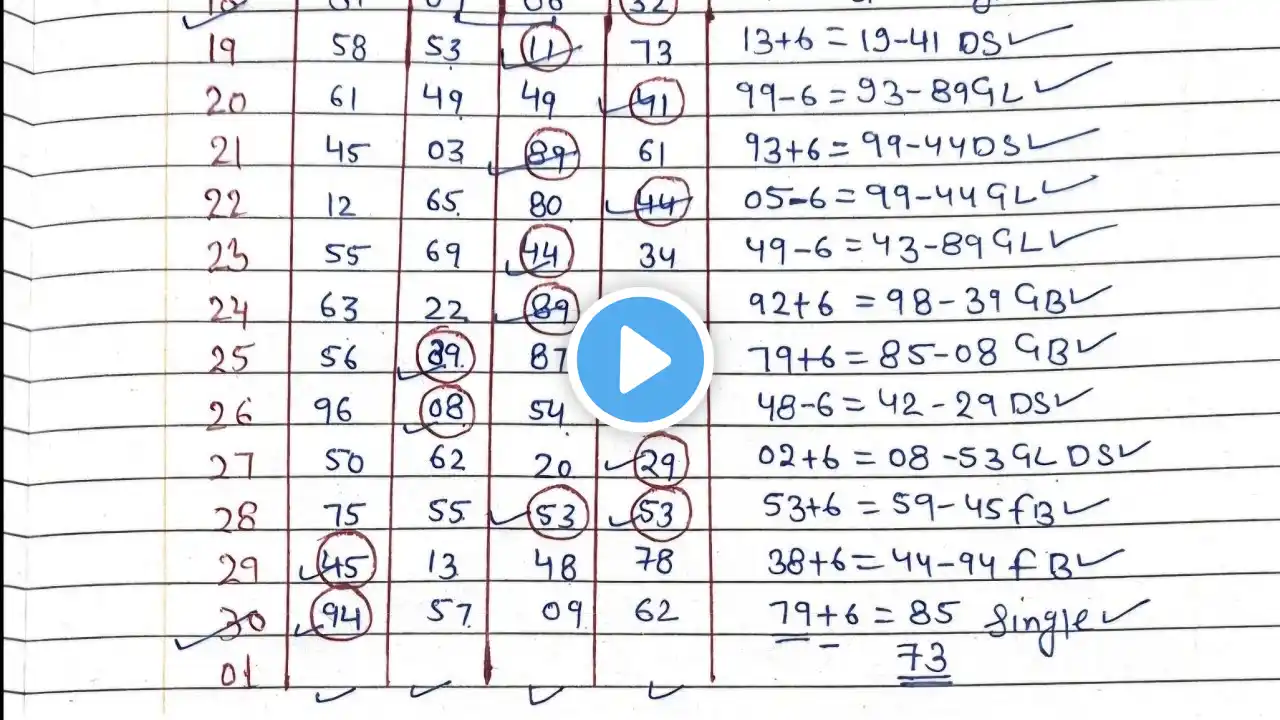 32
19 58 53 11 73 13+6=19-41 DS
20 61 49 49 41 99-6=93-89 GL
21 45 03 89 61 93+6=99-44 DS
22 12 65 80 44 05-6=99-44 GL
23 55 69 44 34 49-6=43-89 GL
24 63 22 89 92+6=98-39 GB
25 56 39 87 79+6=85-08 GB
26 96 08 54 48-6=42-29 DS
27 50 62 20 29 02+6=08-53 GL DS
28 75 55 53 53 53+6=59-45 fB
29 45 13 48 78 38+6=44-94 fB
30 94 57 09 62 79+6=85 Single
01 73